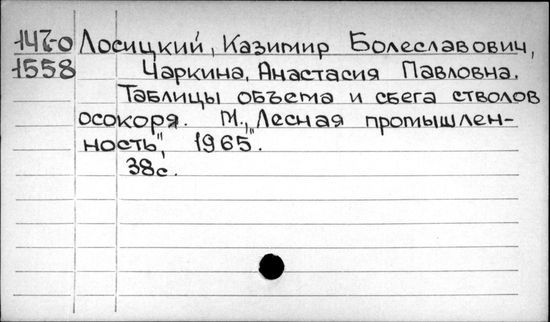 147-0 Лосицкий, Казимир Болеславович,
1558 Чаркина, Анастасия Павловна.
Таблицы объема и сбега стволов
осокоря. М., „Лесная промышлен-
ность", 1965.
38с.